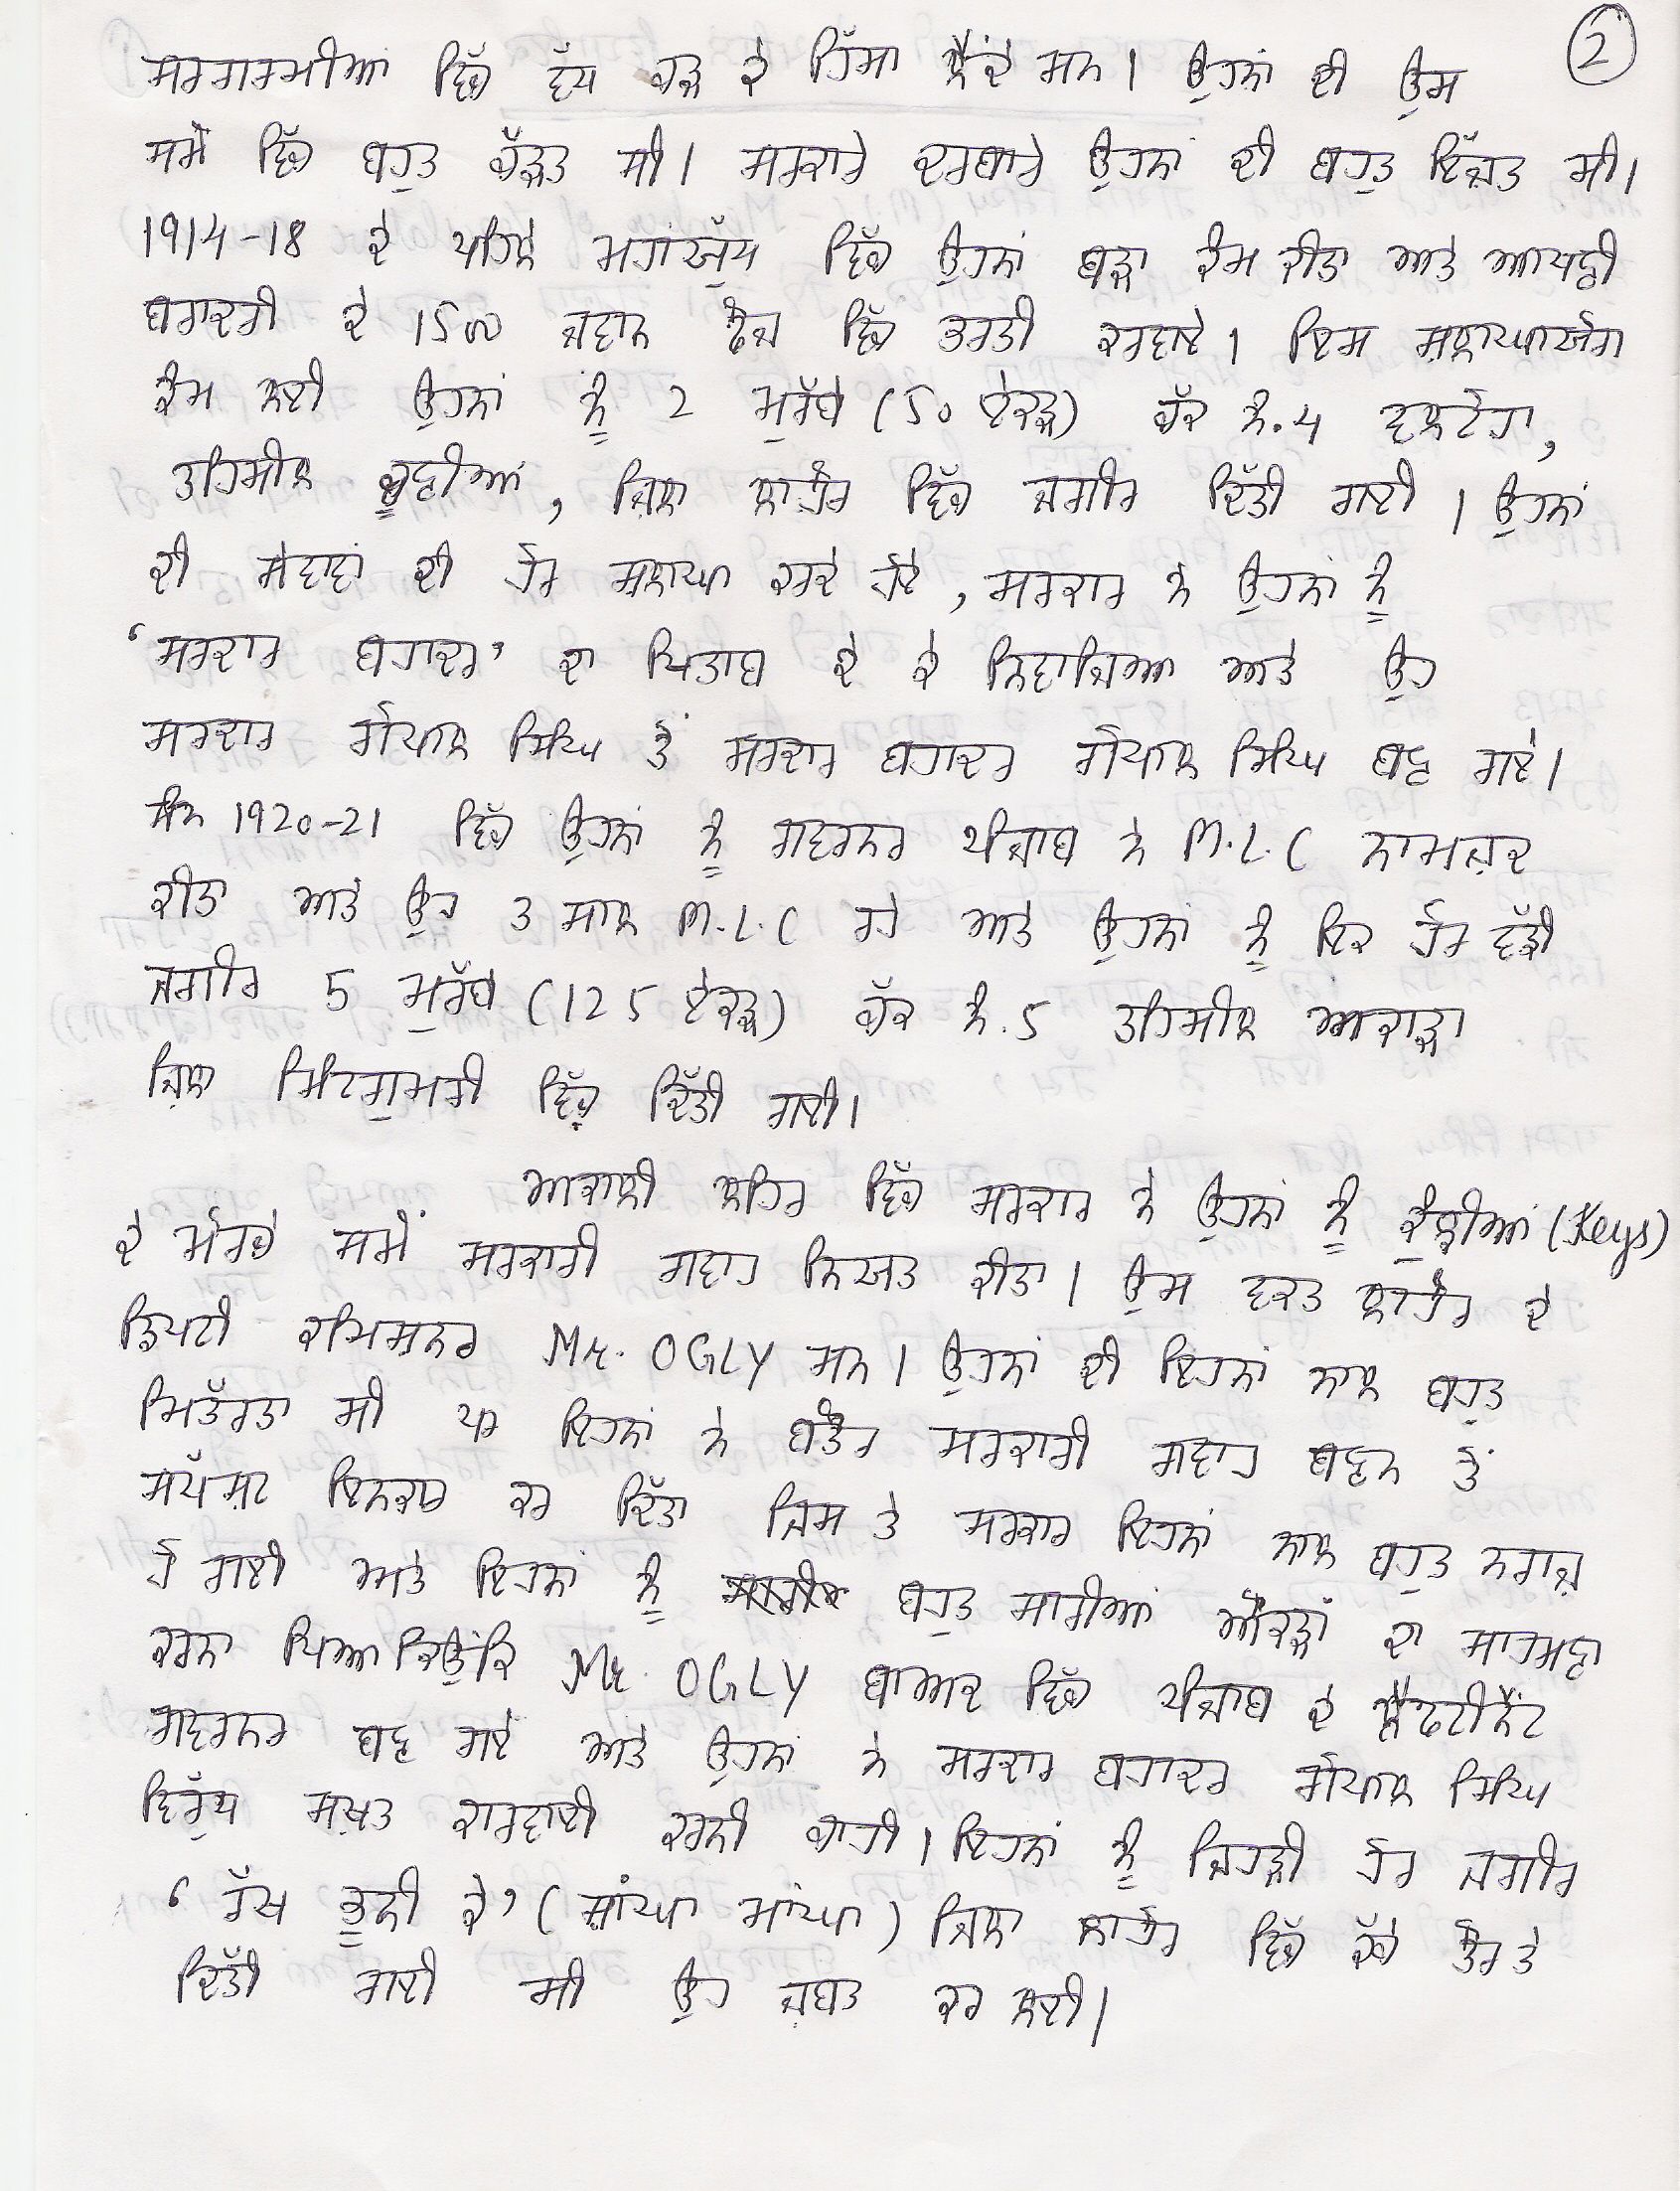 2
ਸਰਗਰਮੀਆਂ ਵਿੱਚ ਵੱਧ ਚੜ ਕੇ ਹਿੱਸਾ ਲੈਂਦੇ ਸਨ। ਉਹਨਾਂ ਦੀ ਉਸ
ਸਮੇਂ ਵਿੱਚ ਬਹੁਤ ਚੱੜਤ ਸੀ। ਸਰਕਾਰੇ ਦਰਬਾਰੇ ਉਹਨਾਂ ਦੀ ਬਹੁਤ ਇੱਜ਼ਤ ਸੀ।
1914-18 ਦੇ ਪਹਿਲੇ ਮਹਾਂਯੁੱਧ ਵਿੱਚ ਉਹਨਾਂ ਬੜਾ ਕੰਮ ਕੀਤਾ ਅਤੇ ਆਪਣੀ
ਬਰਾਦਰੀ ਦੇ 1500 ਜਵਾਨ ਫੌਜ ਵਿੱਚ ਭਰਤੀ ਕਰਵਾਏ। ਇਸ ਸ਼ਲਾਘਾਯੋਗ
ਕੰਮ ਲਈ ਉਹਨਾਂ ਨੂੰ 2 ਮੁਰੱਬੇ (50 ਏਕੜ) ਚੱਕ ਨੰ. 4 ਵਲਟੋਹਾ,
ਤਹਿਸੀਲ ਚੂਣੀਆਂ, ਜ਼ਿਲਾ ਲਾਹੌਰ ਵਿੱਚ ਜਗੀਰ ਦਿੱਤੀ ਗਈ। ਉਹਨਾਂ
ਦੀ ਸੇਵਾਵਾਂ ਦੀ ਹੋਰ ਸ਼ਲਾਘਾ ਕਰਦੇ ਹੋਏ, ਸਰਕਾਰ ਨੇ ਉਹਨਾਂ ਨੂੰ
‘ਸਰਦਾਰ ਬਹਾਦਰ’ ਦਾ ਖਿਤਾਬ ਦੇ ਕੇ ਨਿਵਾਜਿਆ ਅਤੇ ਉਹ
ਸਰਦਾਰ ਗੋਪਾਲ ਸਿੰਘ ਤੋਂ ਸਰਦਾਰ ਬਹਾਦਰ ਗੋਪਾਲ ਸਿੰਘ ਬਣ ਗਏ।
ਸੰਨ 1920-21 ਵਿੱਚ ਉਹਨਾਂ ਨੂੰ ਗਵਰਨਰ ਪੰਜਾਬ ਨੇ M.L.C ਨਾਮਜ਼ਦ
ਕੀਤਾ ਅਤੇ ਉਹ 3 ਸਾਲ M.L.C ਰਹੇ ਅਤੇ ਉਹਨਾਂ ਨੂੰ ਇਕ ਹੋਰ ਵੱਡੀ
ਜਗੀਰ 5 ਮੁਰੱਬੇ (125 ਏਕੜ) ਚੱਕ ਨੰ. 5 ਤਹਿਸੀਲ ਅਕਾੜਾ
ਜ਼ਿਲਾ ਮਿੰਟਗੁਮਰੀ ਵਿੱਚ ਦਿੱਤੀ ਗਈ।
ਅਕਾਲੀ ਲਹਿਰ ਵਿੱਚ ਸਰਕਾਰ ਨੇ ਉਹਨਾਂ ਨੂੰ ਕੁੰਜੀਆਂ (Keys)
ਦੇ ਮੋਰਚੇ ਸਮੇਂ ਸਰਕਾਰੀ ਗਵਾਹ ਨਿਯਤ ਕੀਤਾ। ਉਸ ਵਕਤ ਲਾਹੌਰ ਦੇ
ਡਿਪਟੀ ਕਮਿਸ਼ਨਰ Mr. OGLY ਸਨ। ਉਹਨਾਂ ਦੀ ਇਹਨਾਂ ਨਾਲ ਬਹੁਤ
ਮਿਤੱਰਤਾ ਸੀ ਪਰ ਇਹਨਾਂ ਨੇ ਬਤੌਰ ਸਰਕਾਰੀ ਗਵਾਹ ਬਣਨ ਤੋਂ
ਸਪੱਸ਼ਟ ਇਨਕਾਰ ਕਰ ਦਿੱਤਾ ਜਿਸ ਤੇ ਸਰਕਾਰ ਇਹਨਾਂ ਨਾਲ ਬਹੁਤ ਨਰਾਜ਼
ਹੋ ਗਈ ਅਤੇ ਇਹਨਾਂ ਨੂੰ ਬਹੁਤ ਸਾਰੀਆਂ ਔਕੜਾਂ ਦਾ ਸਾਹਮਣਾ
ਕਰਨਾ ਪਿਆ ਕਿਉਂਕਿ Mr. OGLY ਬਾਅਦ ਵਿੱਚ ਪੰਜਾਬ ਦੇ ਲੈਫਟੀਨੈਂਟ
ਗਵਰਨਰ ਬਣ ਗਏ ਅਤੇ ਉਹਨਾਂ ਨੇ ਸਰਦਾਰ ਬਹਾਦਰ ਗੋਪਾਲ ਸਿੰਘ
ਵਿਰੁੱਧ ਸਖ਼ਤ ਕਾਰਵਾਈ ਕਰਨੀ ਚਾਹੀ। ਇਹਨਾਂ ਨੂੰ ਜਿਹੜੀ ਹੋਰ ਜਗੀਰ
‘ਰੱਖ ਭੂਨੀ ਕੇ’ (ਸ਼ਾਂਘਾ ਮਾਂਘਾ) ਜ਼ਿਲਾ ਲਾਹੌਰ ਵਿੱਚ ਕੱਚੇ ਤੌਰ ਤੇ
ਦਿੱਤੀ ਗਈ ਸੀ ਉਹ ਜ਼ਬਤ ਕਰ ਲਈ।